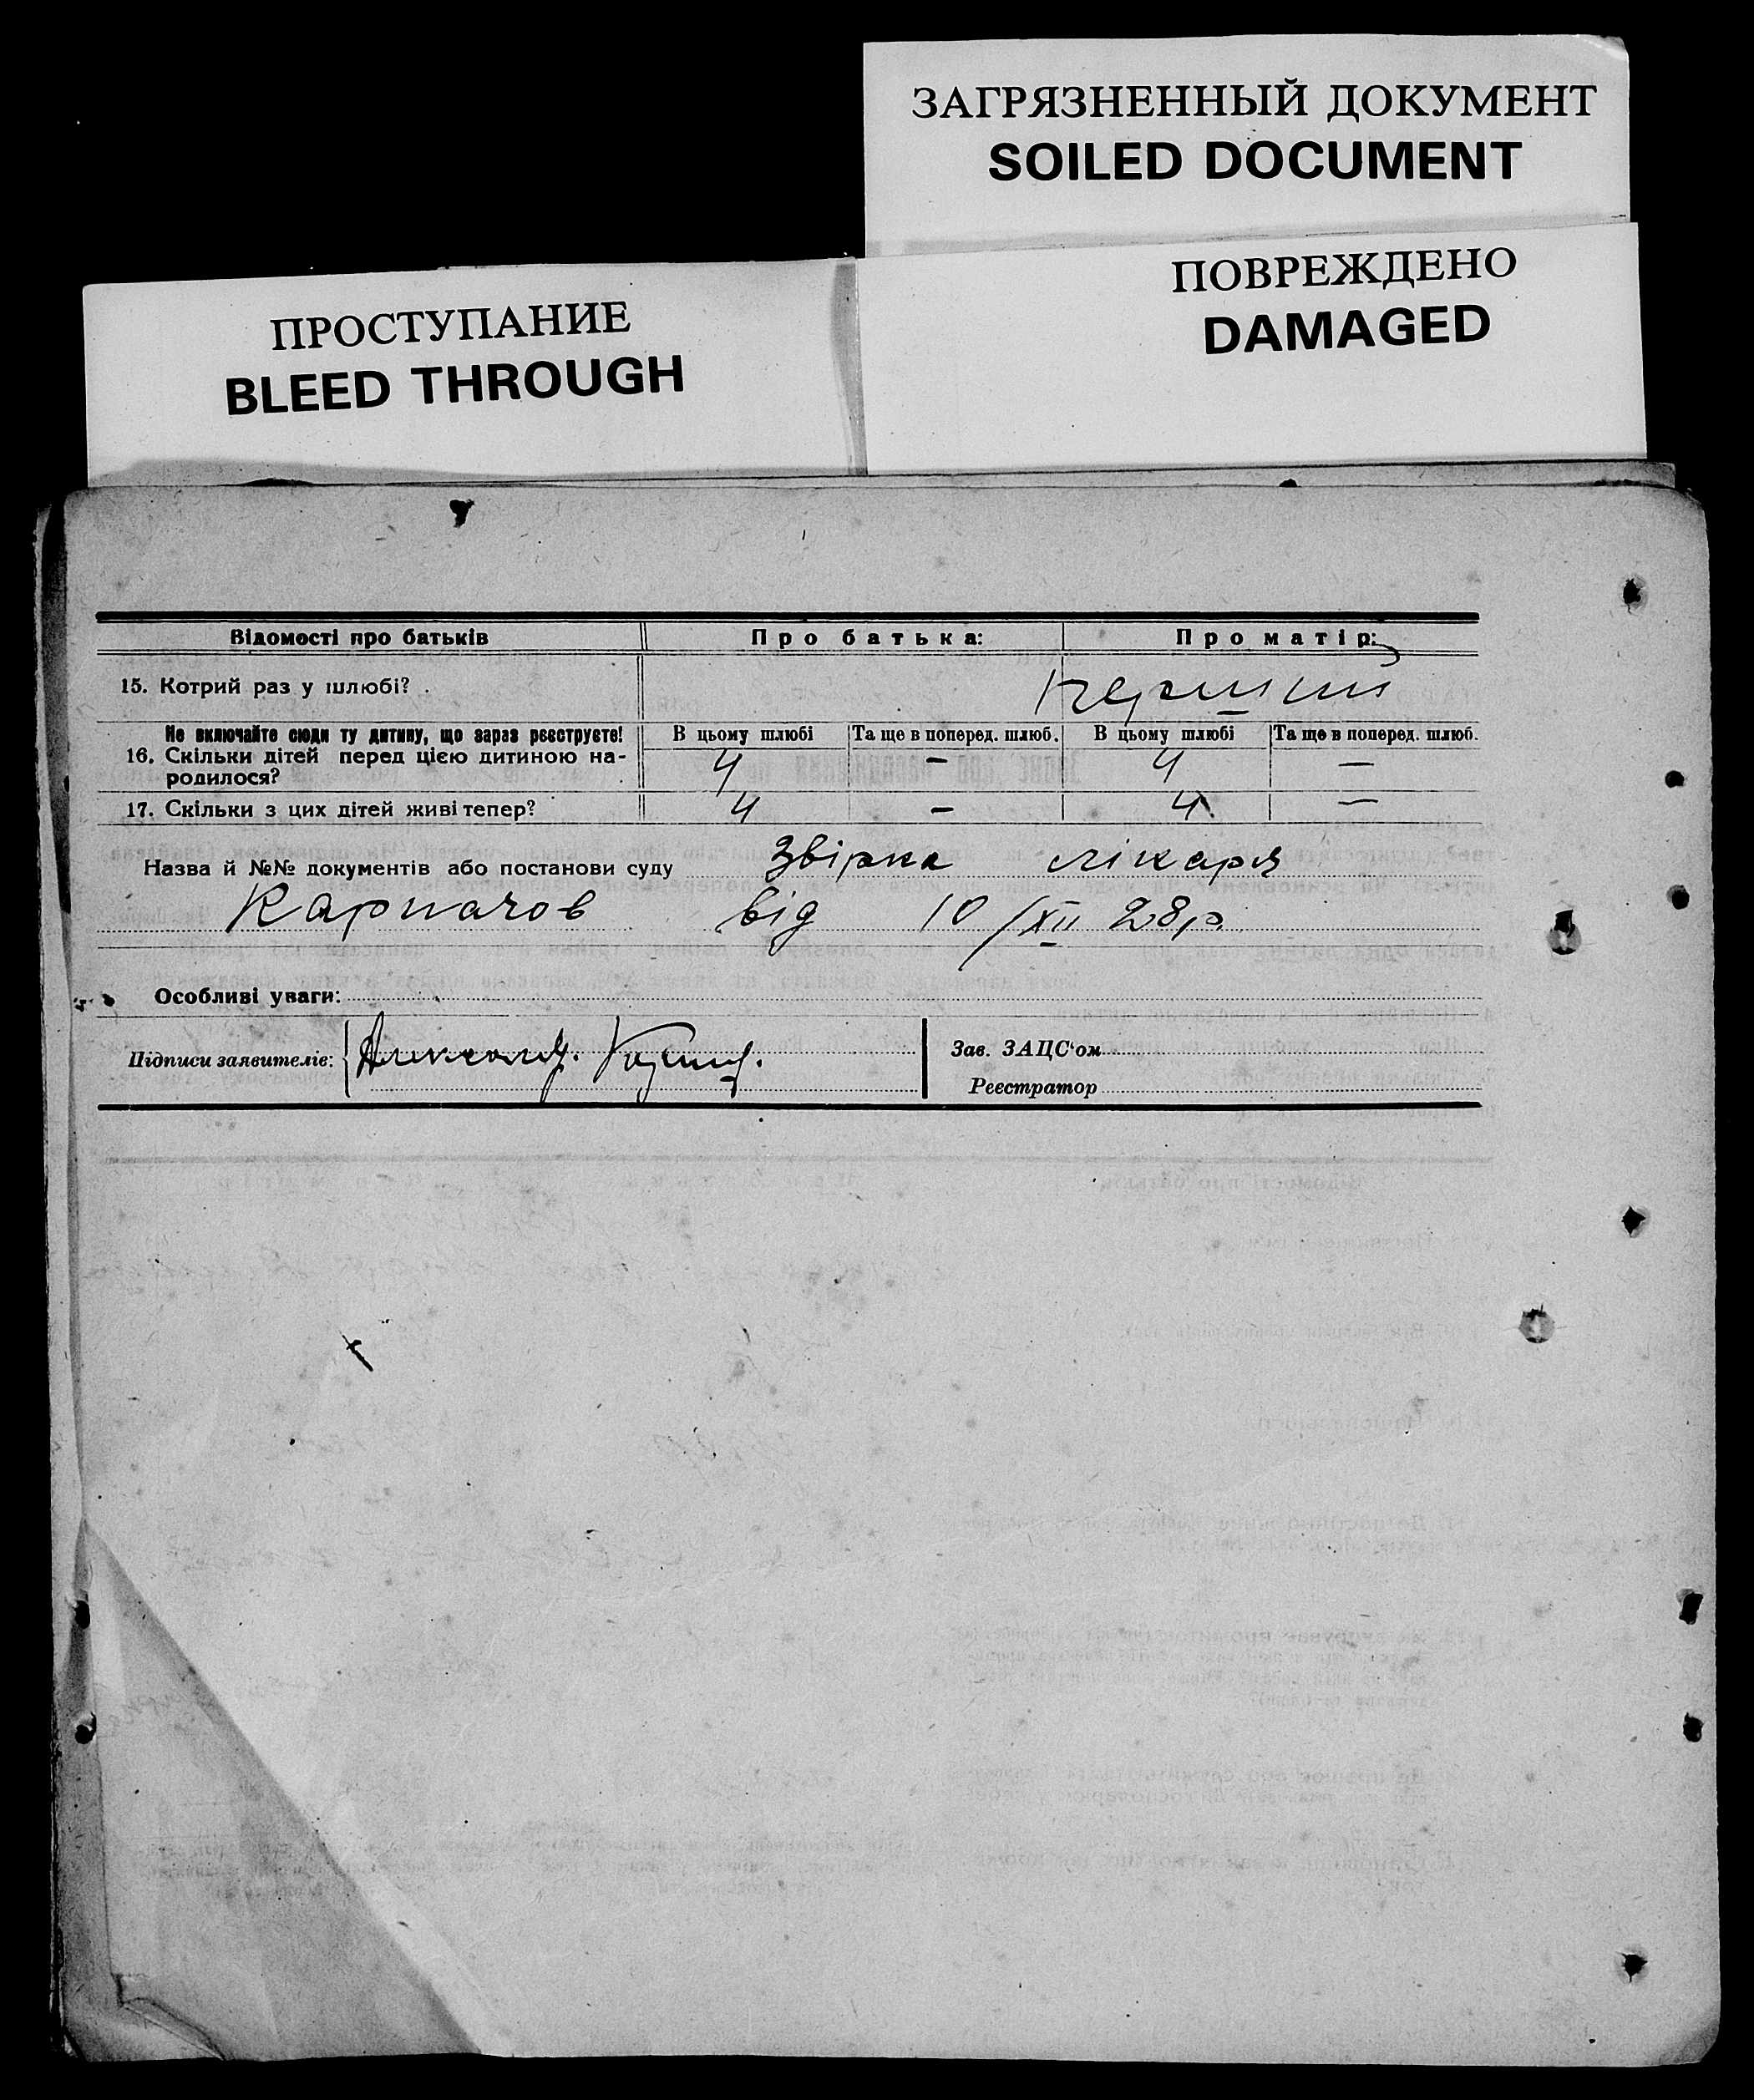 ЗАГРЯЗНЕННЫЙ ДОКУМЕНТ
SOILED DOCUMENT
ПОВРЕЖДЕНО
DAMAGED
ПРОСТУПАНИЕ
BLEED THROUGH
Відомості про батьків Про батька: Про матір:
15. Котрий раз у шлюбі? .
Не включайте сюди ту дитину, що зараз реєструєте! В цьому шлюбі Та ще в поперед. шлюб. В цьому шлюбі Та ще в поперед. шлюб.
16. Скільки дітей перед цією дитиною на-
родилося? 4 - 4 -
17. Скільки з цих дітей живі тепер? 4 - 4 -
Назва й №№ документів або постанови суду лікаря
Карпачов від 10/XII 28р.
Особливі уваги:
Підписи заявителів: Зав. ЗАЦС'ом
Реєстратор